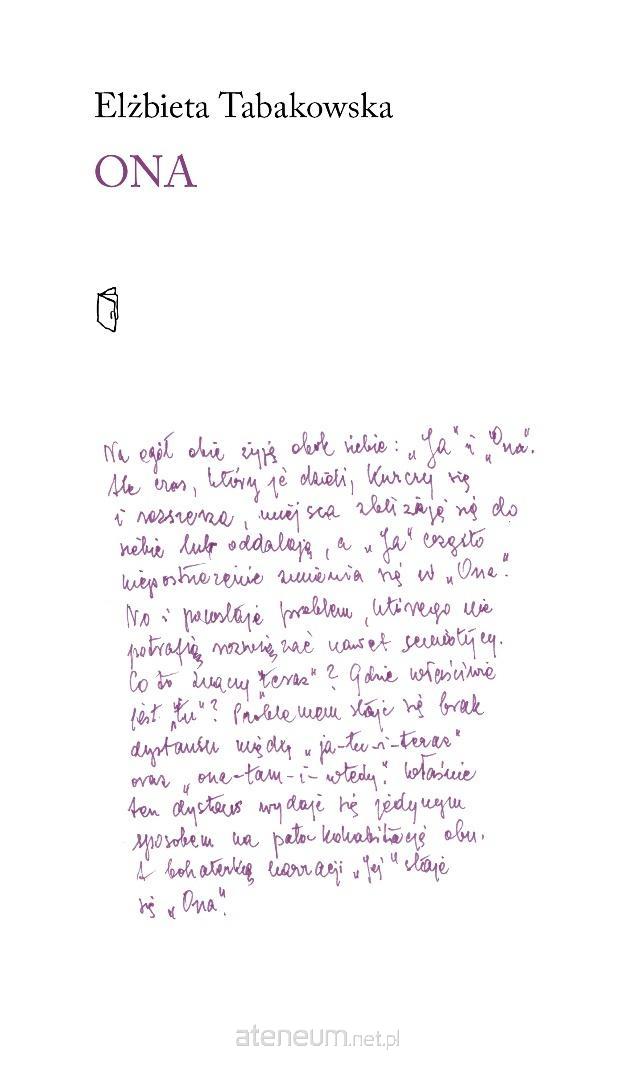 Elżbieta Tabakowska
ONA
Na ogół obie żyją obok siebie: „Ja” i „Ona”.
Ale czas, który je dzieli, kurczy się
i rozszerza, miejsca zbliżają się do
siebie lub oddalają, a „Ja” często
niepostrzeżenie zmienia się w „Ona”.
No i pozostaje problem, którego nie
potrafią rozwiązać nawet semiotycy.
Co to znaczy „teraz”? Gdzie właściwie
jest „tu”? Problemem staje się brak
dystansu między „ja-tu-i-teraz”
oraz „ona-tam-i-wtedy”. Właśnie
ten dystans wydaje się jedynym
sposobem na kohabitację obu.
A bohaterką narracji „Jej” staje
się „Ona”.
ateneum.net.pl